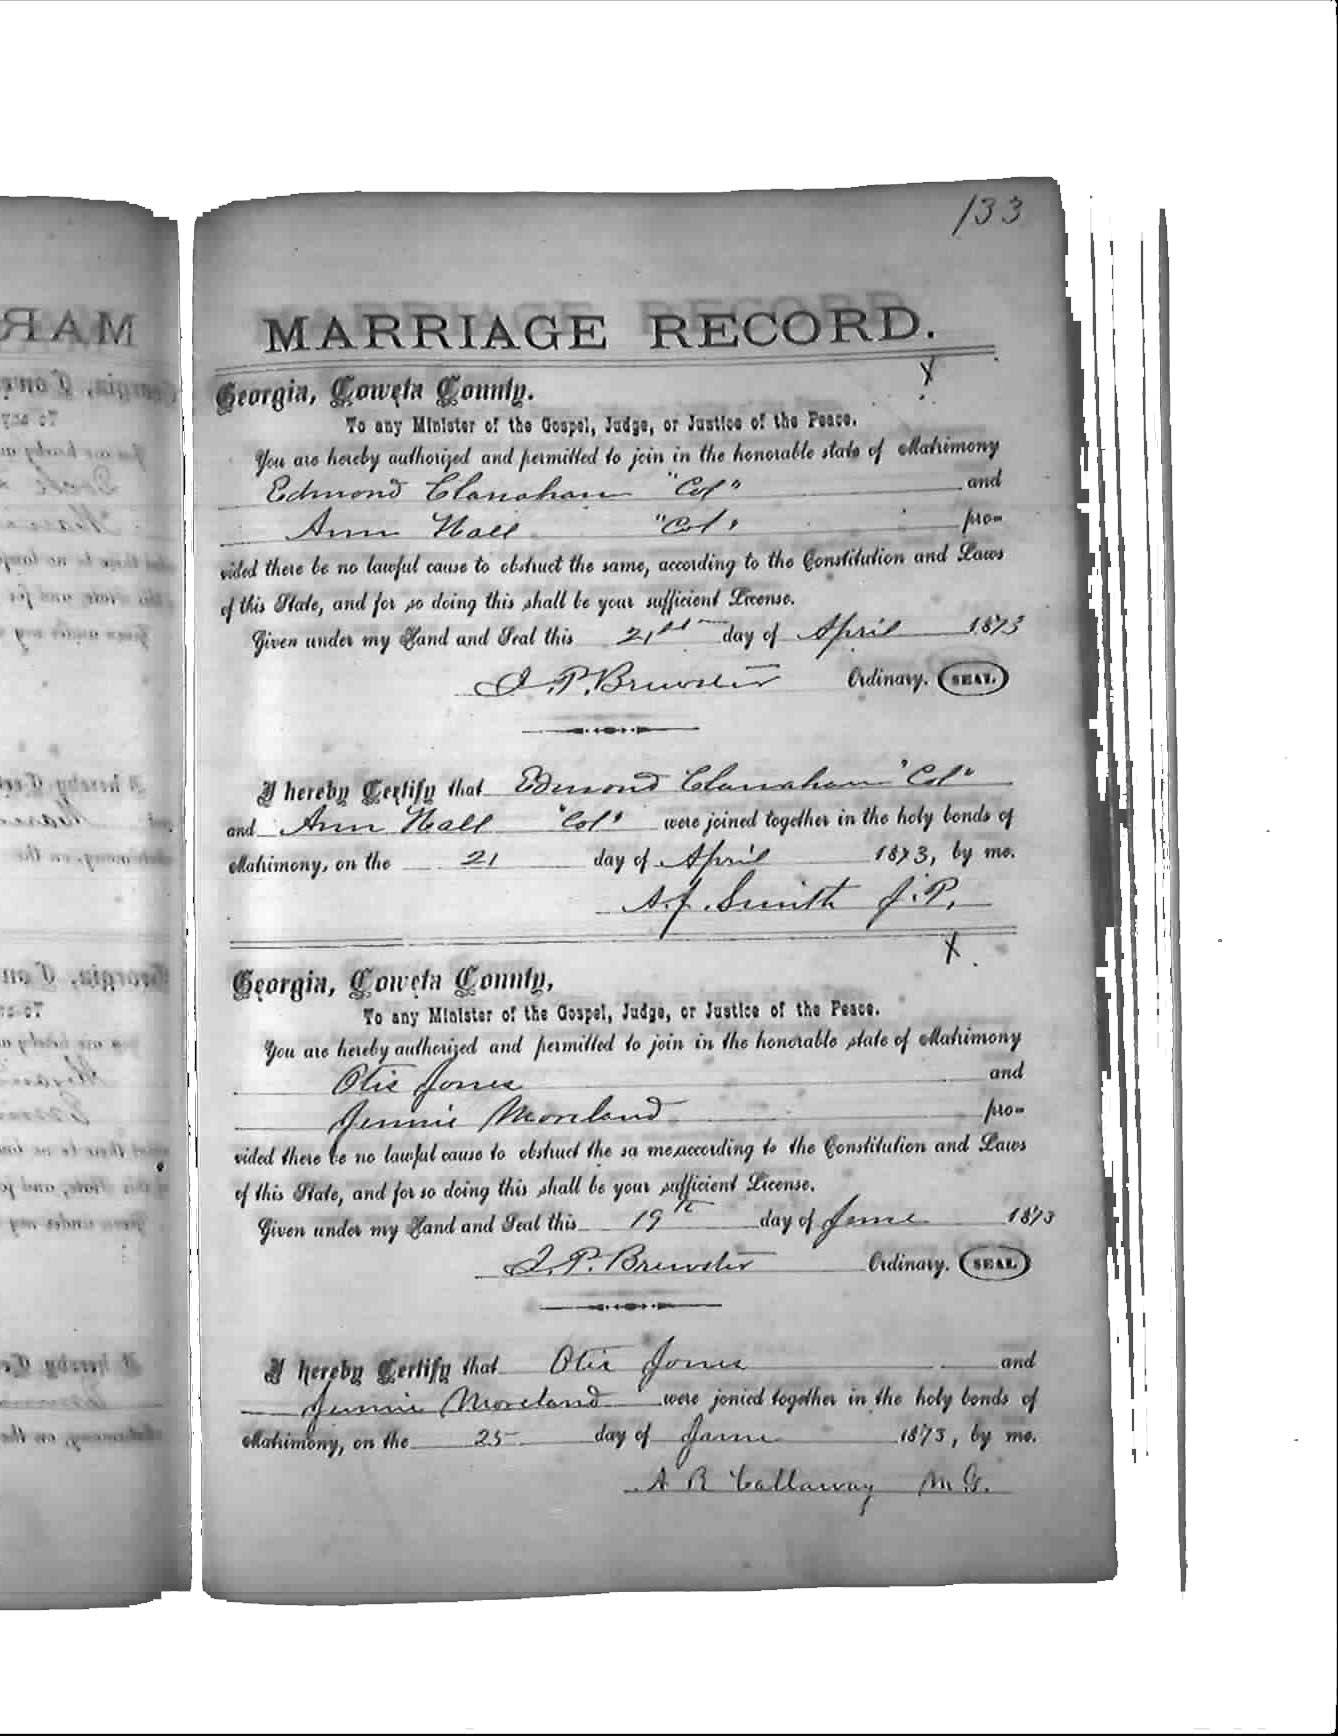 133
MARRIAGE RECORD.
X
Georgia, Coweta County.
To any Minister of the Gospel, Judge, or Justice of the Peace.
You are hereby authorized and permitted to join in the honorable state of Matrimony
Edmond Clanaham "Col" and
Ann Hall "Col" pro-
vided there be no lawful cause to obstruct the same, according to the Constitution and Laws
of this State, and for so doing this shall be your sufficient License.
Given under my Hand and Seal this 21st day of April 1873
J. P. Brewster Ordinary. SEAL
I hereby Certify that Edmond Clanaham "Col"
and Ann Hall "Col" were joined together in the holy bonds of
Matrimony, on the 21 day of April 1873, by me.
A. J. Smith J. P.
X
Georgia, Coweta County,
To any Minister of the Gospel, Judge, or Justice of the Peace.
You are hereby authorized and permitted to join in the honorable state of Matrimony
Otis Jones and
Jennie Moreland pro-
vided there be no lawful cause to obstruct the sa me,according to the Constitution and Laws
of this State, and for so doing this shall be your sufficient License.
Given under my Hand and Seal this 19th day of June 1873
J. P. Brewster Ordinary. SEAL
I hereby Certify that Otis Jones and
Jennie Moreland were jonied together in the holy bonds of
Matrimony, on the 25 day of June 1873, by me.
A R Callaway M. G.